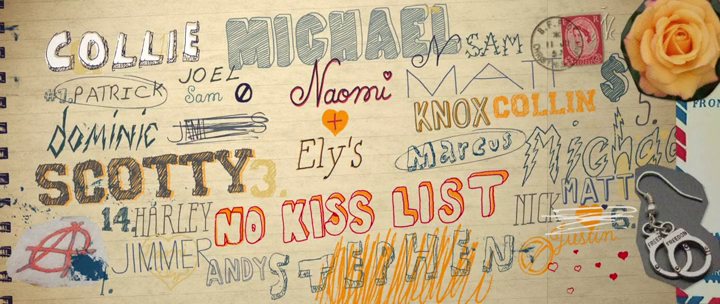 COLLIE MICHAEL N SAM
MATT
S
#1. PATRICK JOEL
Sam
Naomi
+
Ely's
KNOX COLLIN
5.
FROM
dominic
Marcus Michael
SCOTTY 3.
14. HARLEY
NO KISS LIST
NICK MATT
5.
Justin
JIMMER
ANDY STEPHEN
FREEDOM